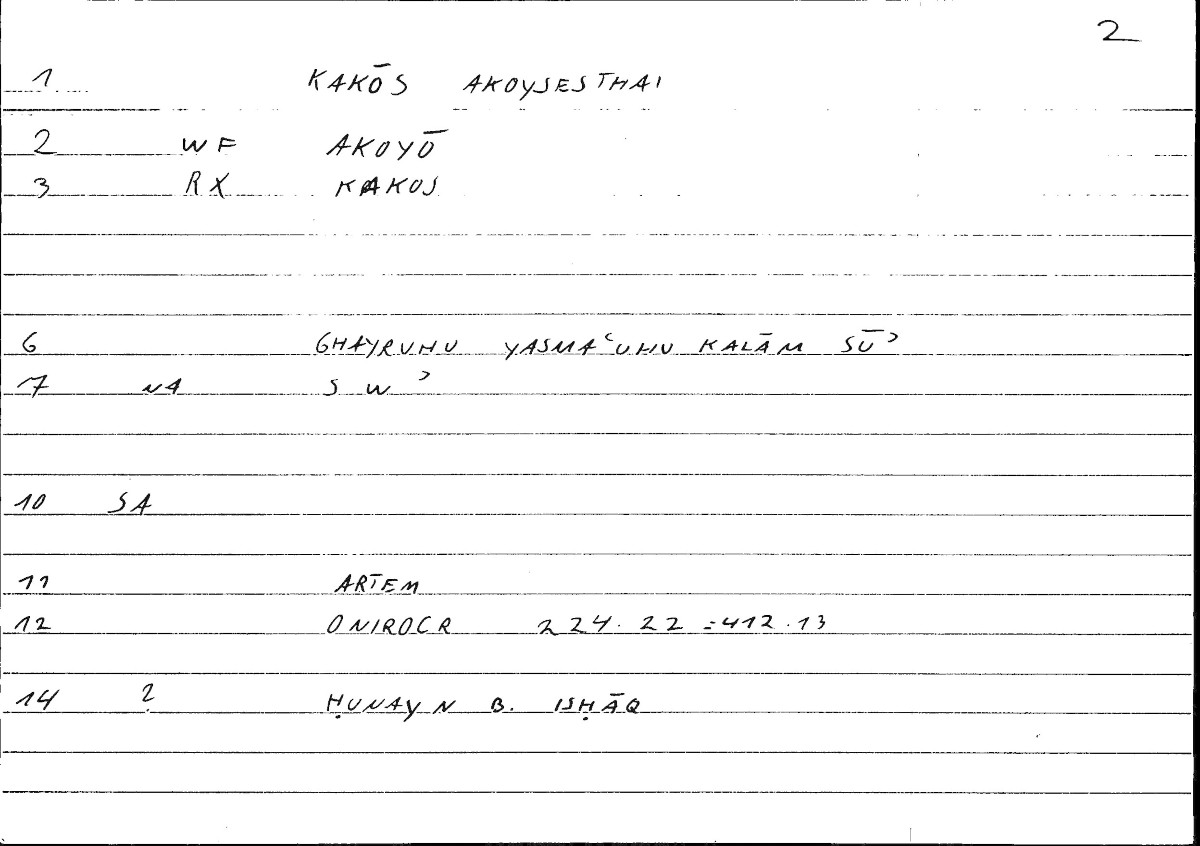 2
1 KAKŌS AKOYSESTHAI
2 WF AKOYŌ
3 RX KAKOS
6 GHAYRUHU YASMAʿUHU KALĀM SŪʾ
7 NA S W ʾ
10 SA
11 ARTEM
12 ONIROCR 224.22 = 412.13
14 ? ḤUNAYN B. ISḤĀQ